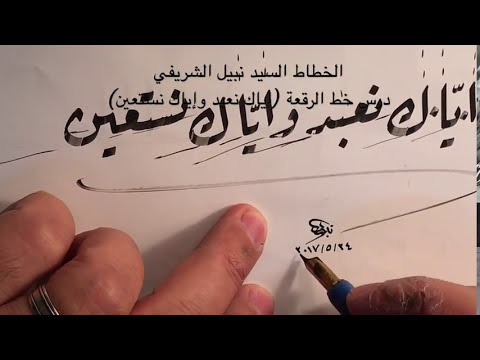 الخطاط السيد نبيل الشريفي
درس خط الرقعة (إياك نعبد وإياك نستعين)
ايّاك نعبد وايّاك نستعين
نبيل
٢٠١٧/٥/٢٤